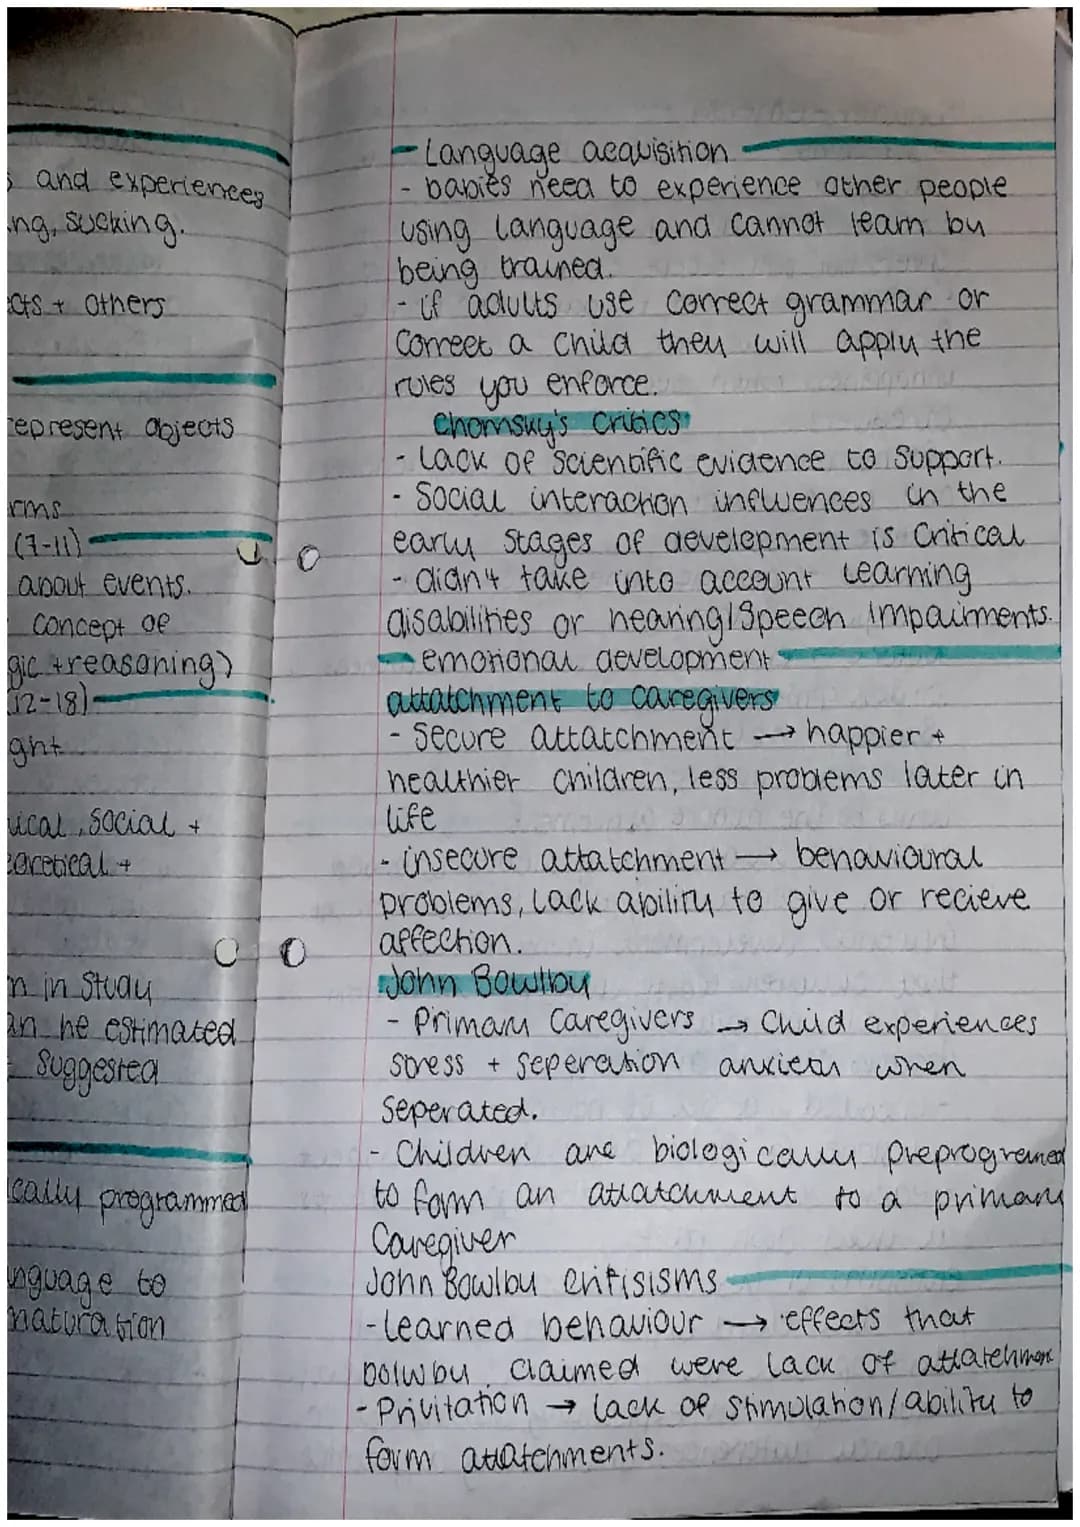 and experiences
ng, sucking.
cts + others
represent objects
rms
(7-11)
about events.
concept of
gic + reasoning)
(12-18)
ght
ical, social +
eoretical +
n in study
an be estimated
suggested
cally programmed
nguage to
maturation
- Language acquisition
- babies need to experience other people
using language and cannot learn by
being trained.
- if adults use correct grammar or
correct a child they will apply the
rules you enforce.
Chomsky's Critics
- lack of scientific evidence to support.
- Social interaction influences in the
early stages of development is critical
- didn't take into account learning
disabilities or hearing/speech impairments.
- emotional development
attatchment to caregivers
- Secure attatchment → happier +
healthier children, less problems later in
life
- insecure attatchment → behavioural
problems, lack ability to give or recieve
affection.
John Bowlby
- Primary Caregivers → Child experiences
stress + seperation anxiety when
seperated.
- Children are biologically preprogramed
to form an attatchment to a primary
Caregiver
John Bowlby critisisms
- learned behaviour → effects that
bolwby claimed were lack of attatchment
- Privitation → lack of stimulation/ability to
form attatchments.